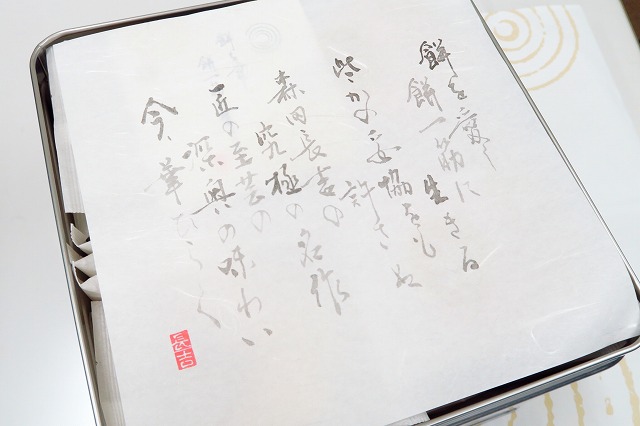 餅を愛し
餅一筋に生きる
些かの妥協をも
許さぬ
森田長吉の名作
究極の
匠の至芸の
深奥の味わい
今、華ひらく
長吉